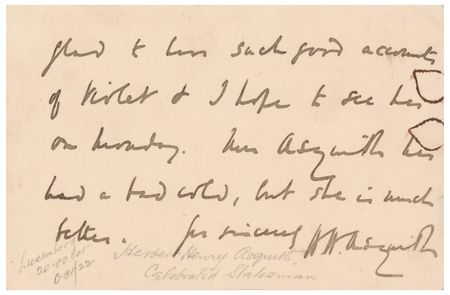 glad to have such good accounts
of Violet & I hope to see her
on Monday. Mrs Asquith has
had a bad cold, but she is much
better. Yrs sincerely HH. Asquith
Herbert Henry Asquith
Celebrated Statesman